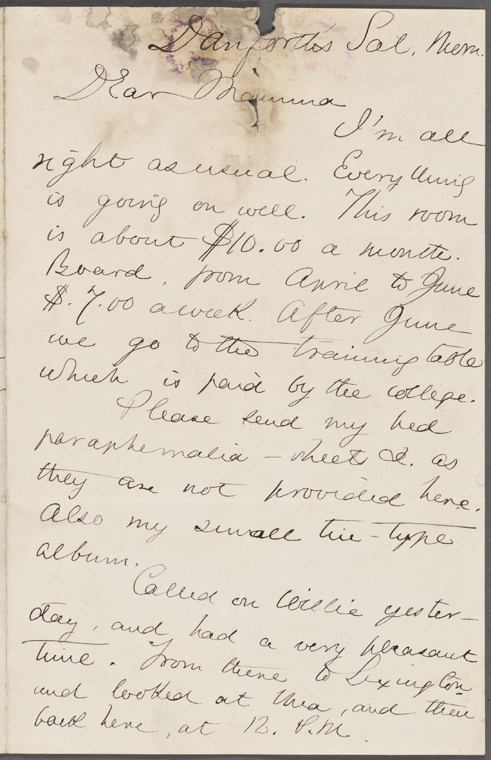 Danforth's Sat. Morn.
Dear Mamma
I'm all
right as usual. Everything
is going on well. This room
is about $10.00 a month.
Board, from April to June
$.7.00 a week. After June
we go to the training table
which is paid by the college.
Please send my bed
paraphernalia - sheets &. as
they are not provided here.
Also my small tin-type
album.
Called on Willie yester-
day, and had a very pleasant
time. From there to Lexington
and looked at Una, and then
back here, at 12. P.M.